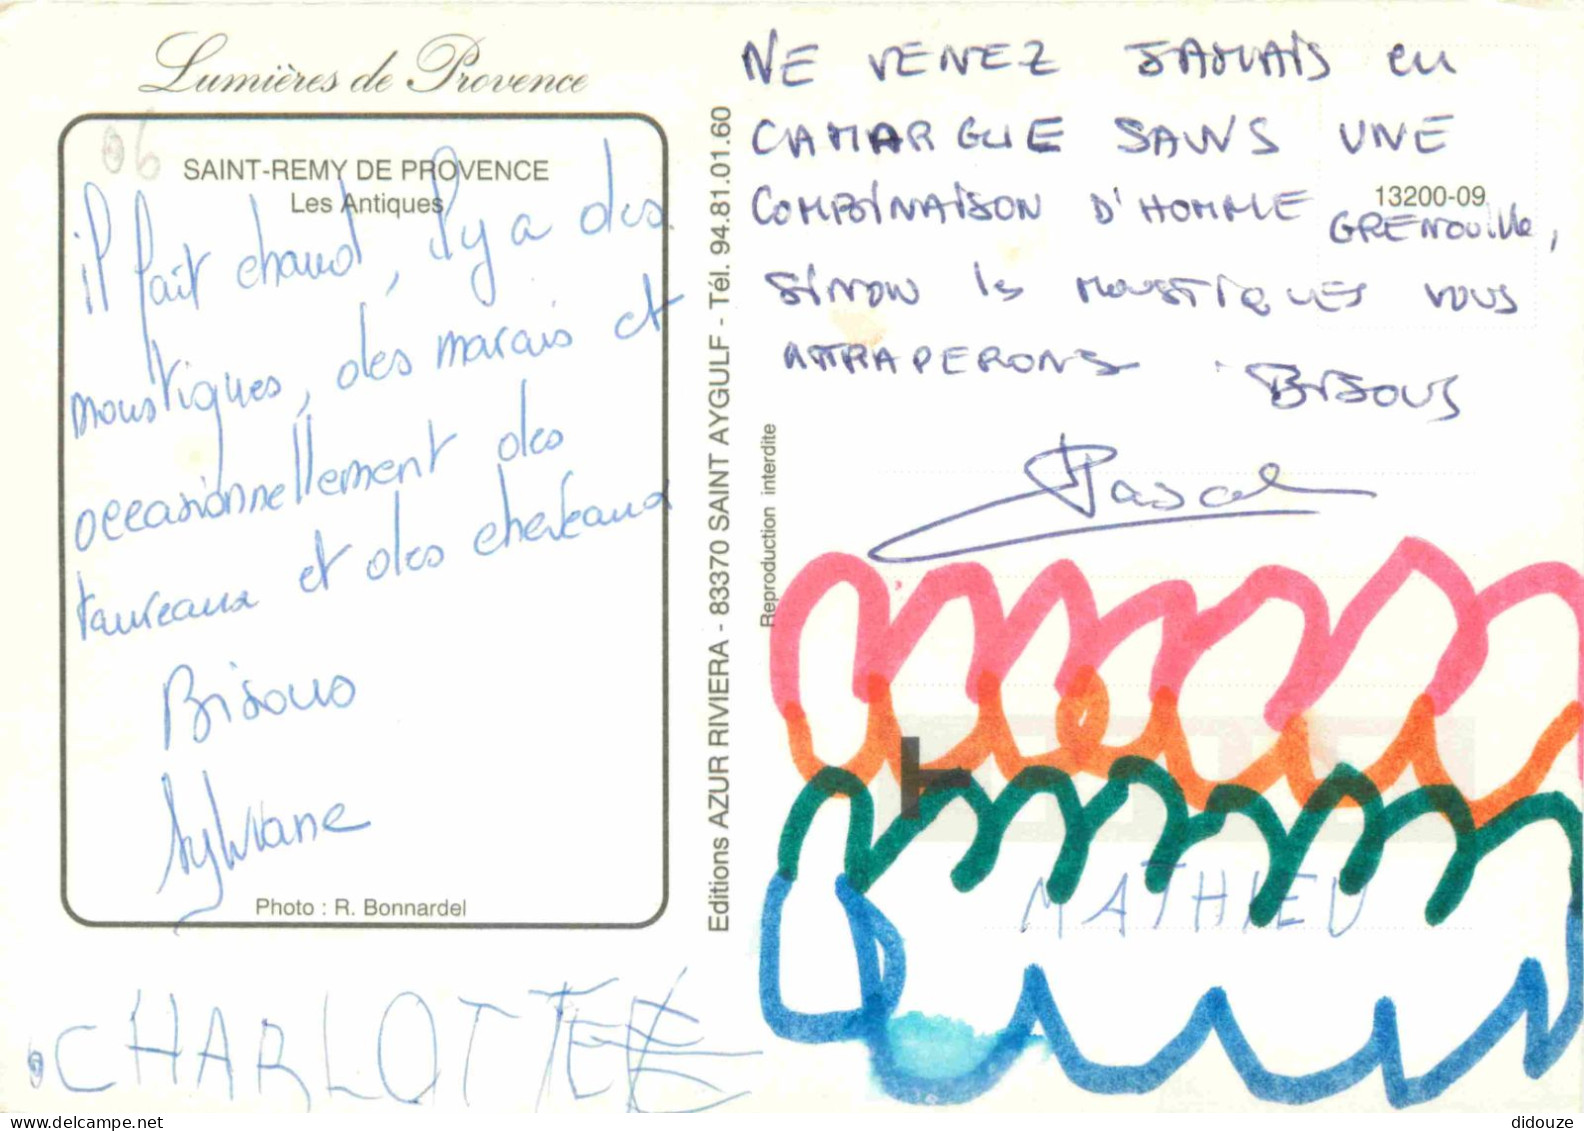 Lumières de Provence
06
SAINT-REMY DE PROVENCE
Les Antiques
il fait chaud, il y a des
moustiques, des marais et
occasionnellement des
taureaux et des chevaux
Bisous
Sylviane
Photo : R. Bonnardel
CHARLOTTE
Editions AZUR RIVIERA - 83370 SAINT AYGULF - Tél. 94.81.01.60
Reproduction interdite
NE VENEZ JAMAIS EN
CAMARGUE SANS UNE
COMBINAISON D'HOMME GRENOUILLE,
13200-09
SINON les MOUSTIQUES VOUS
ATTRAPERONS BISOUS
Pascal
MATHIEU
delcampe.net
didouze